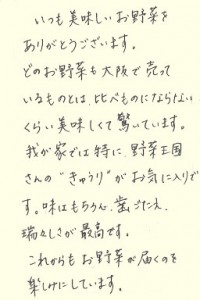 いつも美味しいお野菜を
ありがとうございます。
どのお野菜も大阪で売って
いるものとは、比べものにならない
くらい美味しくて驚いています。
我が家では特に、野菜王国
さんの"きゅうり"がお気に入りで
す。味はもちろん、歯ごたえ、
瑞々しさが最高です。
これからもお野菜が届くのを
楽しみにしています。